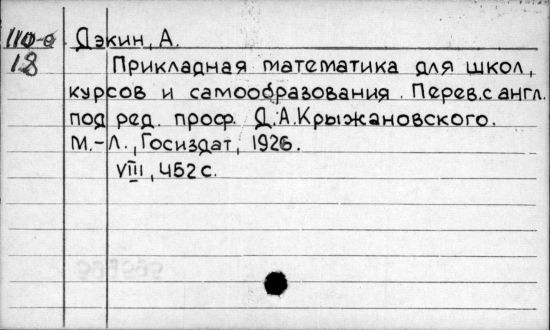 110-е Дэкин, А.
18 Прикладная математика для школ,
курсов и самообразования. Перев. с англ.
под ред. проф. Д.А.Крыжановского.
М.-Л., Госиздат, 1926.
VIII, 452 с.